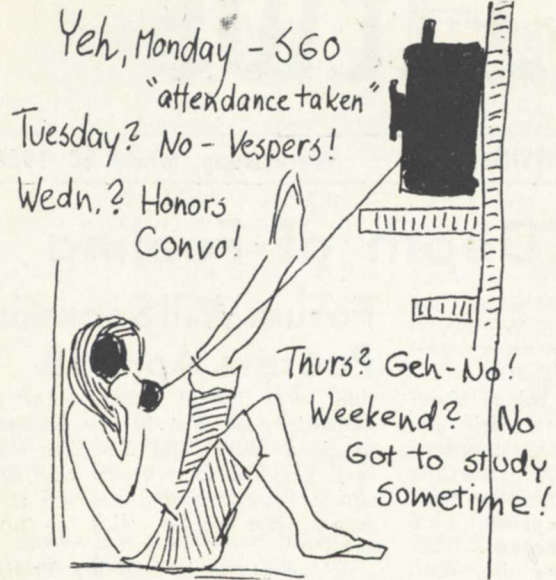 Yeh, Monday - SGO
"attendance taken"
Tuesday? No - Vespers!
Wedn.? Honors
Convo!
Thurs? Geh-No!
Weekend? No
Got to study
Sometime!